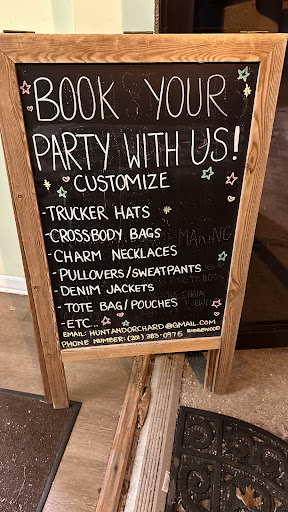 BOOK YOUR
PARTY WITH US!
CUSTOMIZE
-TRUCKER HATS
-CROSSBODY BAGS
-CHARM NECKLACES
-PULLOVERS/SWEATPANTS
-DENIM JACKETS
-TOTE BAG/POUCHES
-ETC...
EMAIL: HUNTANDORCHARD@GMAIL.COM
RIDGEWOOD
PHONE NUMBER: (201) 383-0975